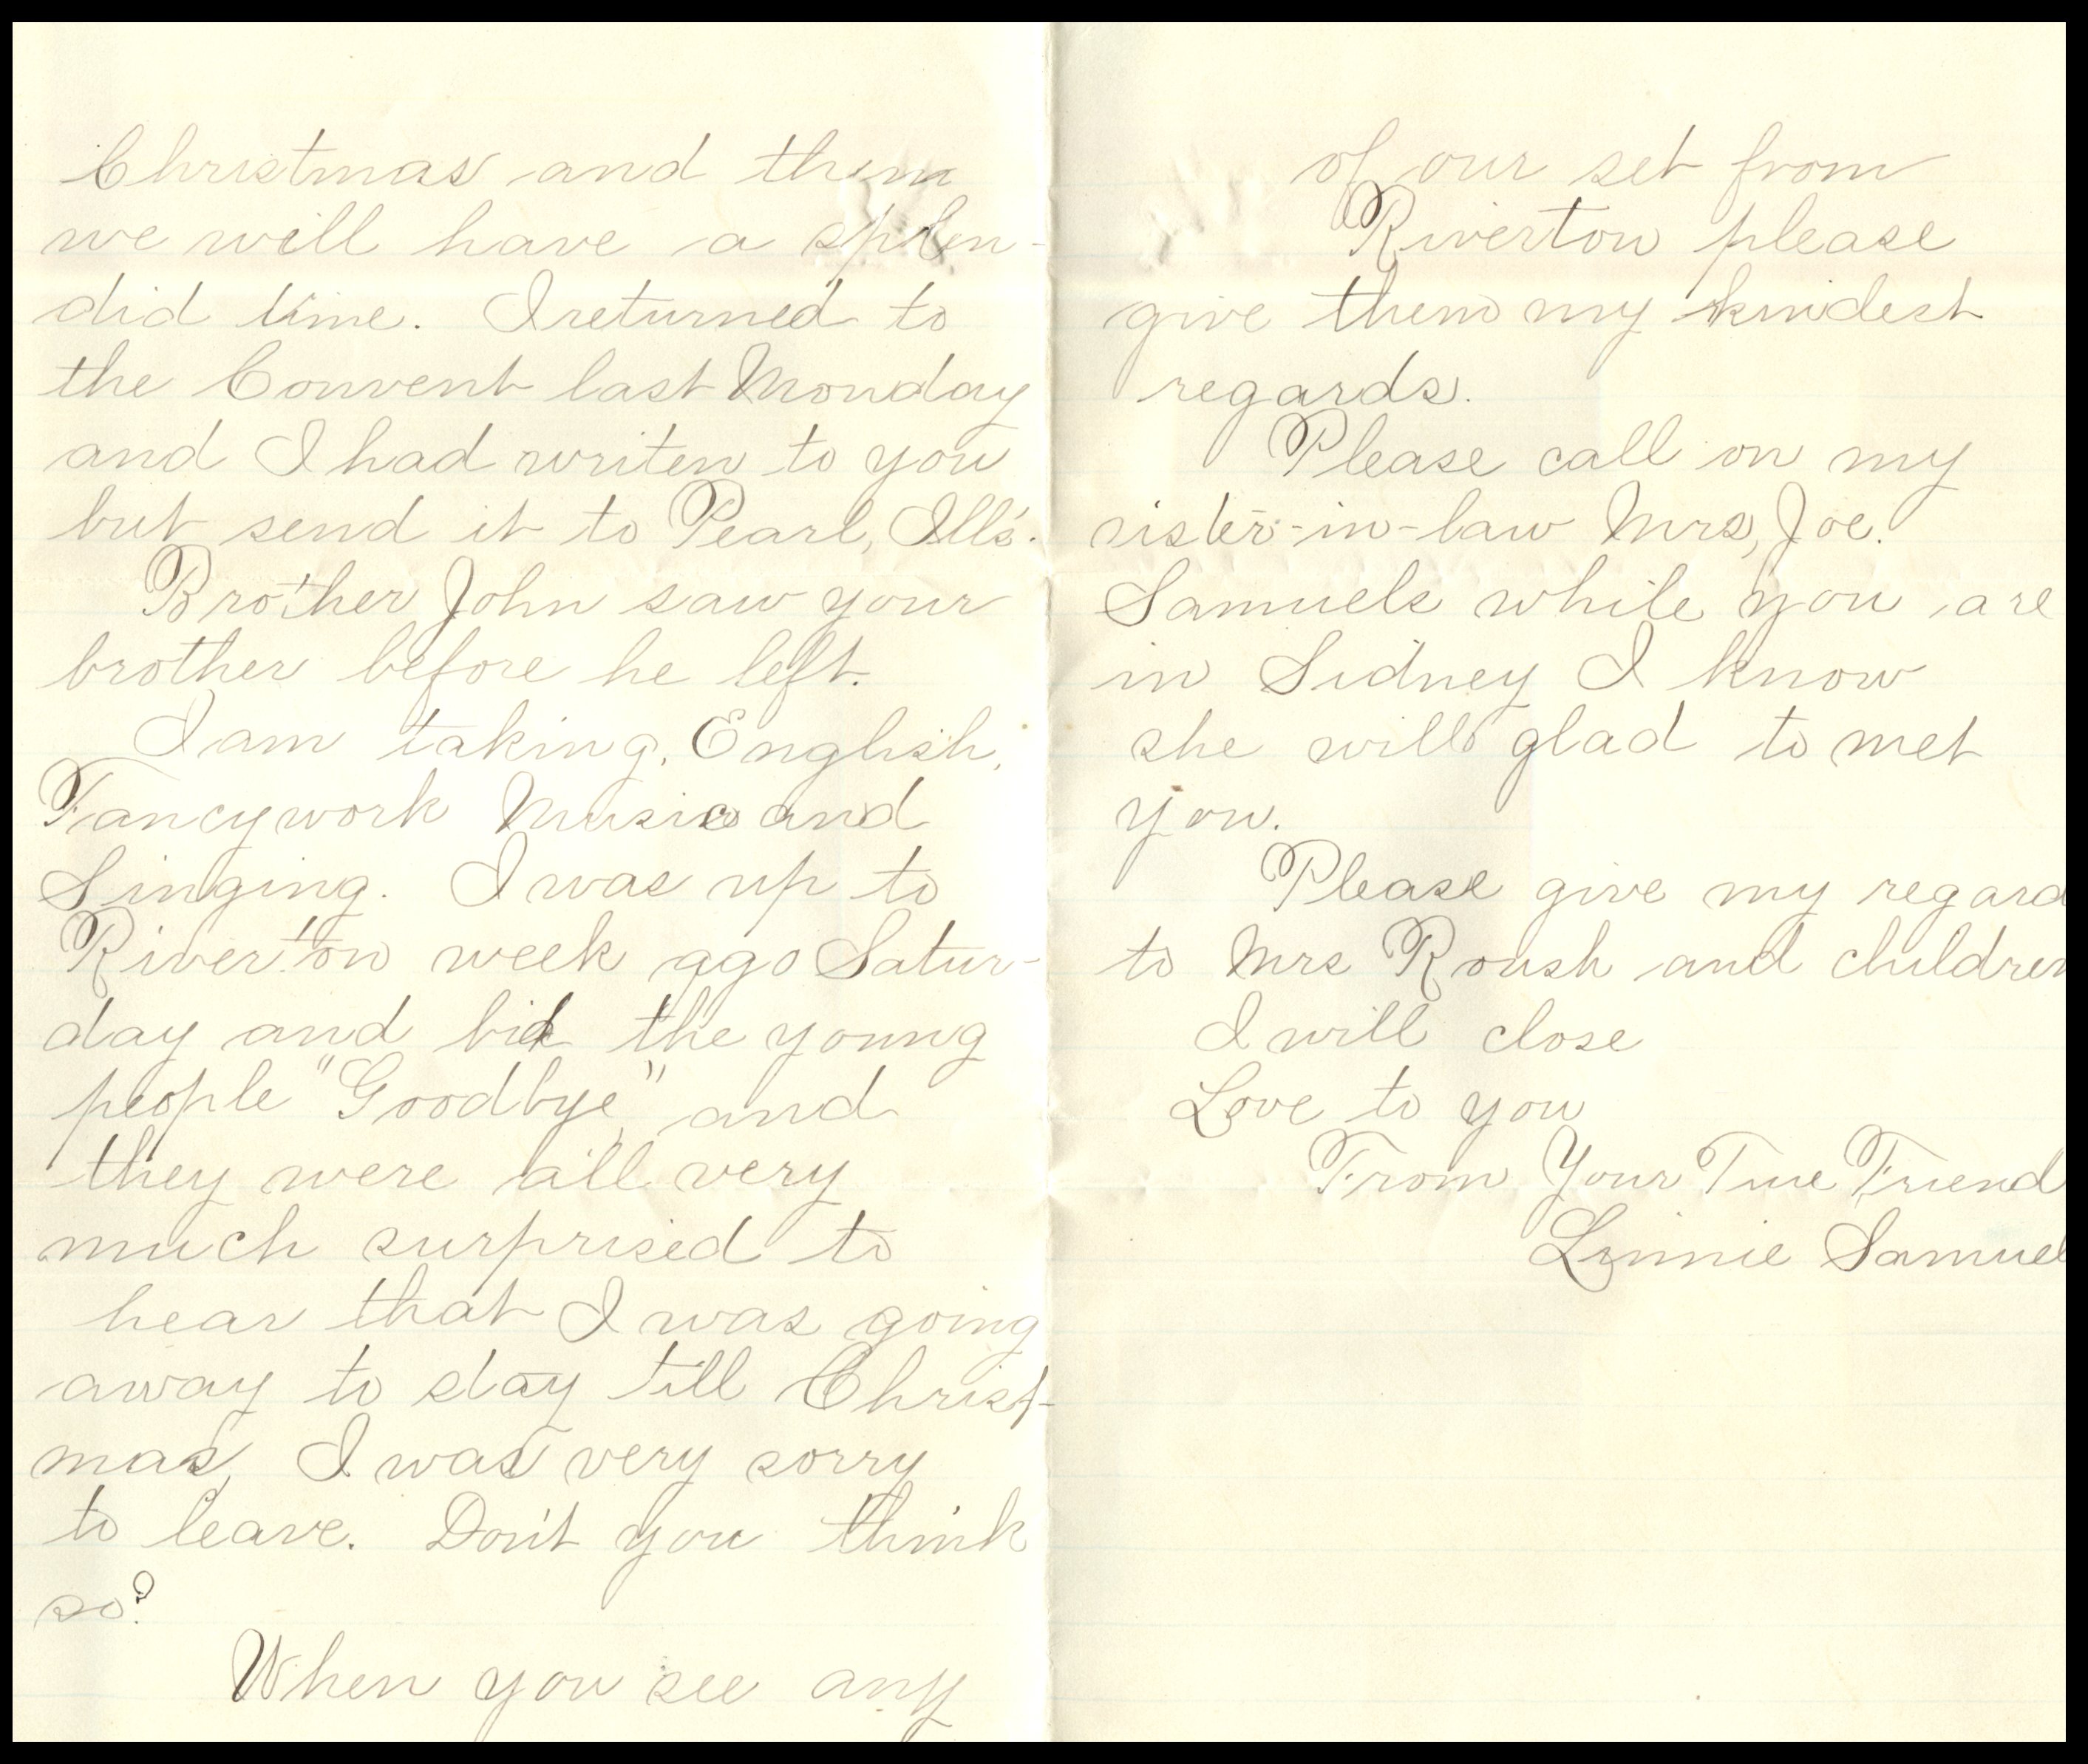 Christmas and then
we will have a splen-
did time. I returned to
the Convent last Monday
and I had writen to you
but send it to Pearl, Ills.
Brother John saw your
brother before he left.
I am taking, English,
Fancywork Music and
Singing. I was up to
Riverton week ago Satur-
day and bid the young
people "Goodbye" and
they were all very
much surprised to
hear that I was going
away to stay till Christ-
mas, I was very sorry
to leave. Don't you think
so?
When you see any
of our set from
Riverton please
give them my kindest
regards.
Please call on my
sister-in-law Mrs, Joe.
Samuels while you are
in Sidney I know
she will glad to met
you.
Please give my regard
to Mrs Roush and children
I will close
Love to you
From Your True Friend
Linnie Samuel